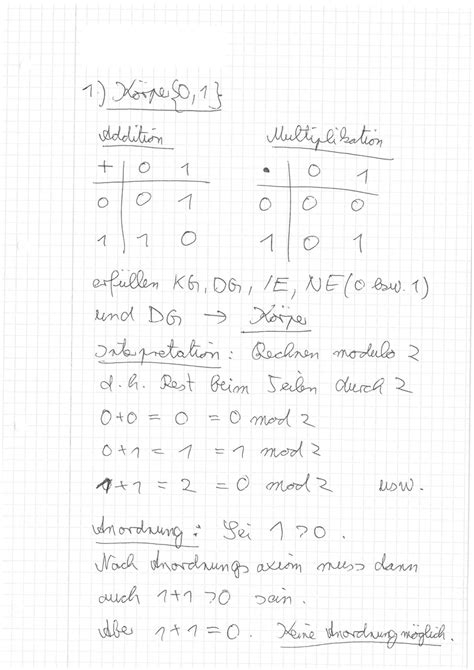 1.) Körper {0,1}
Addition Multiplikation
+ 0 1 • 0 1
0 0 1 0 0 0
1 1 0 1 0 1
erfüllen KG, DG, IE, NE (0 bzw. 1)
und DG → Körper
Interpretation: Rechnen modulo 2
d.h. Rest beim Teilen durch 2
0+0 = 0 = 0 mod 2
0+1 = 1 = 1 mod 2
1+1 = 2 = 0 mod 2 usw.
Anordnung: Sei 1 > 0.
Nach Anordnungsaxiom muss dann
auch 1+1 > 0 sein.
Aber 1+1 = 0. Keine Anordnung möglich.